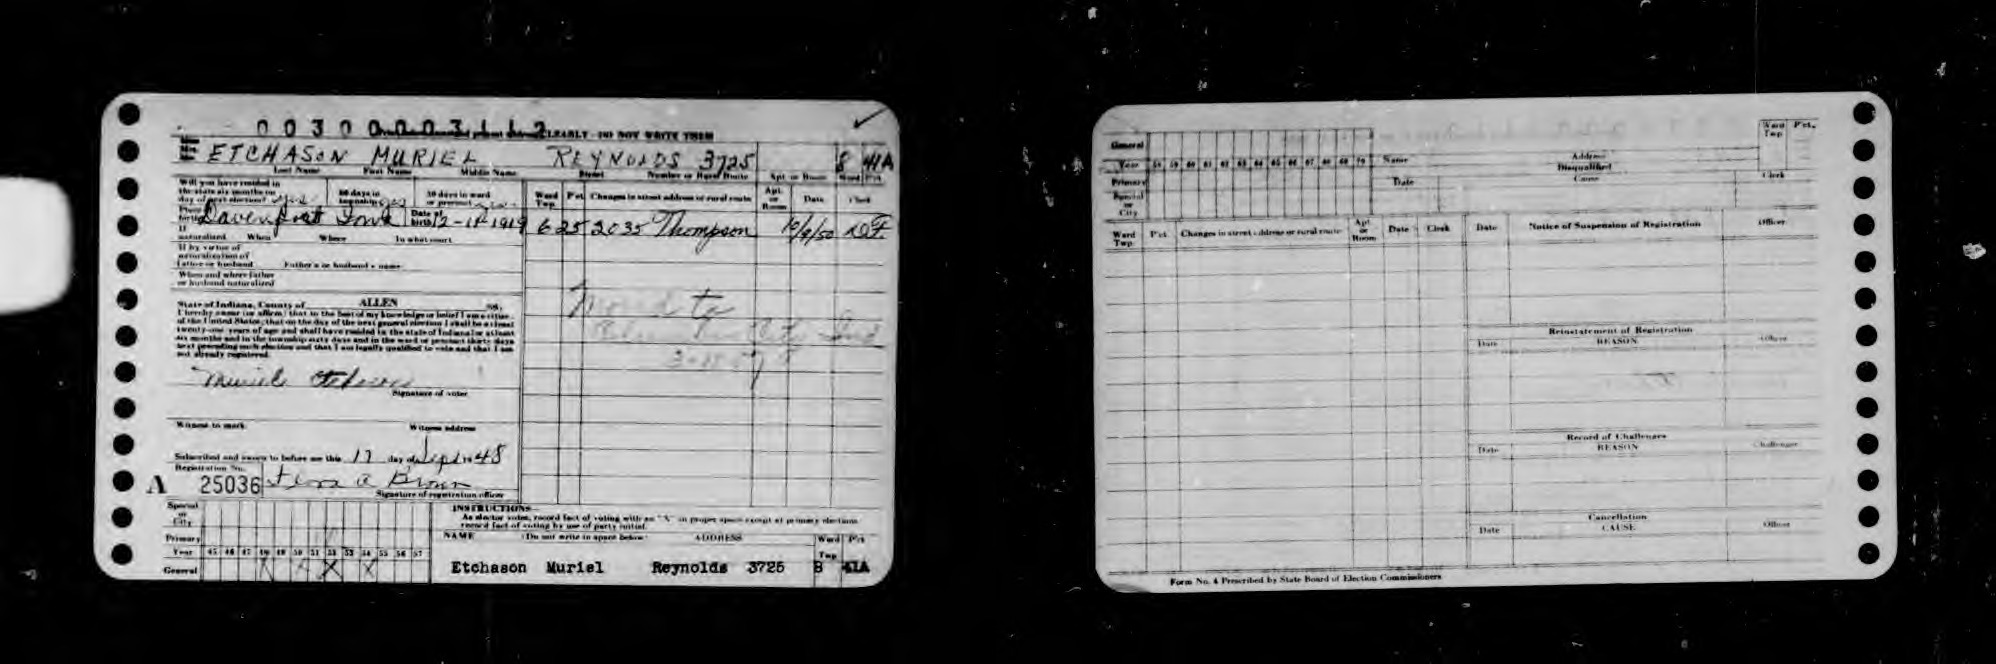 0 0 3 0 0 0 0 3 1 1 2 CLEARLY - DO NOT WRITE THEM
ETCHASON MURIEL REYNOLDS 3725 8 41A
Last Name First Name Middle Name Street Number or Rural Route Apt. or Room Ward Pct.
Will you have resided in the state six months on day of next election? yes 60 days in township yes 30 days in ward or precinct yes
Ward Twp. Pct. Changes in street address or rural route Apt. or Room Date Clerk
Place of birth Davenport Iowa Date of birth 12-11-1919
625 2035 Thompson 10/9/50
If naturalized When Where In what court
If by virtue of naturalization of father or husband Father's or husband's name
When and where father or husband naturalized
State of Indiana, County of ALLEN ss.
I hereby swear (or affirm) that to the best of my knowledge or belief I am a citizen
of the United States; that on the day of the next general election I shall be at least
twenty-one years of age and shall have resided in the state of Indiana for at least
six months and in the township sixty days and in the ward or precinct thirty days
next preceding such election and that I am legally qualified to vote and that I am
not already registered.
Moved to
City Ind
Muriel Etchason
Signature of voter
Witness to mark Witness address
Subscribed and sworn to before me this 17 day of Sept 1948
Registration No.
A 25036 A Brown
Signature of registration officer
Special or City
Primary
Year 45 46 47 48 49 50 51 52 53 54 55 56 57
General X X X X
INSTRUCTIONS—
As elector votes, record fact of voting with an "X" in proper space except at primary elections
record fact of voting by use of party initial.
NAME (Do not write in space below) ADDRESS Ward Twp Pct
Etchason Muriel Reynolds 3725 8 41A
General
Year 58 59 60 61 62 63 64 65 66 67 68 69 70
Primary
Special or City
Name Address Ward Twp Pct.
Disqualified
Date Cause Clerk
Ward Twp. Pct. Changes in street address or rural route Apt. or Room Date Clerk
Date Notice of Suspension of Registration Officer
Reinstatement of Registration
Date REASON Officer
Record of Challenges
Date REASON Challenger
Cancellation
Date CAUSE Officer
Form No. 4 Prescribed by State Board of Election Commissioners